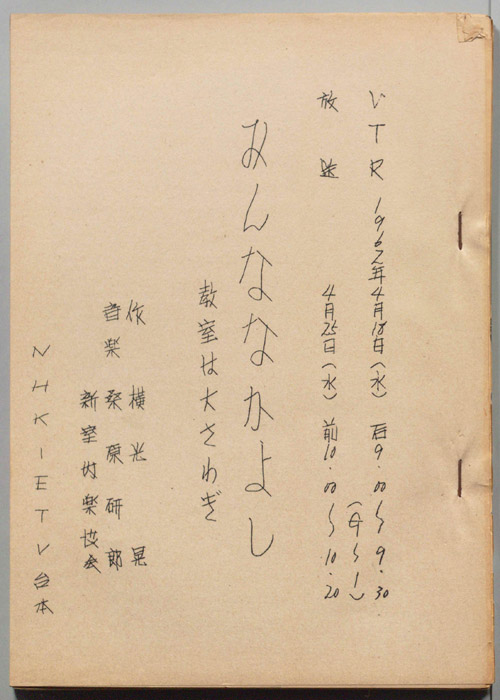 VTR 1962年4月18日(水) 后9.00〜9.30
(Gー1)
放送 4月25日(水) 前10.00〜10.20
みんななかよし
教室は大さわぎ
作 横光 晃
音楽 桑原研郎
新室内楽協会
NHKーETV台本